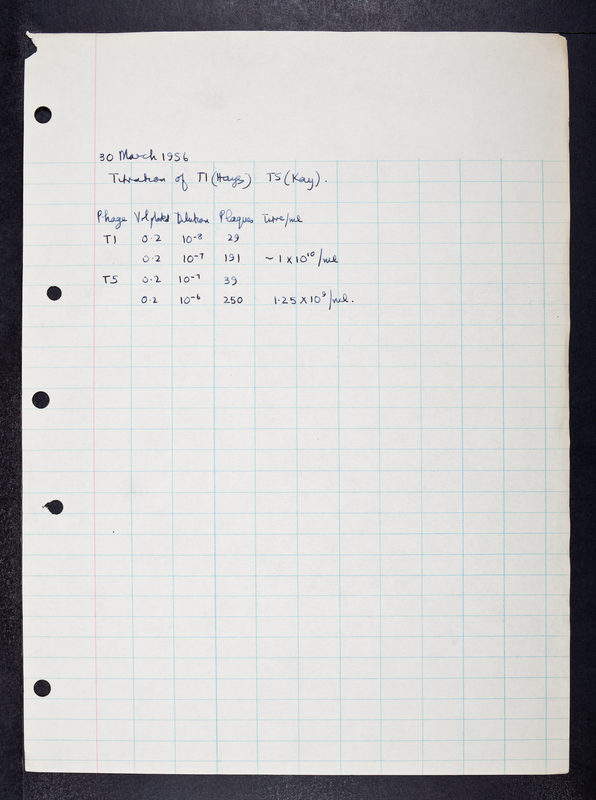 30 March 1956
Titration of T1 (Hays) T5 (Kay).
Phage Vol plated Dilution Plaques Titre/ml
T1 0.2 10⁻⁸ 29
0.2 10⁻⁷ 191 ~ 1 x 10¹⁰/ml
T5 0.2 10⁻⁷ 39
0.2 10⁻⁶ 250 1.25 x 10⁹/ml.